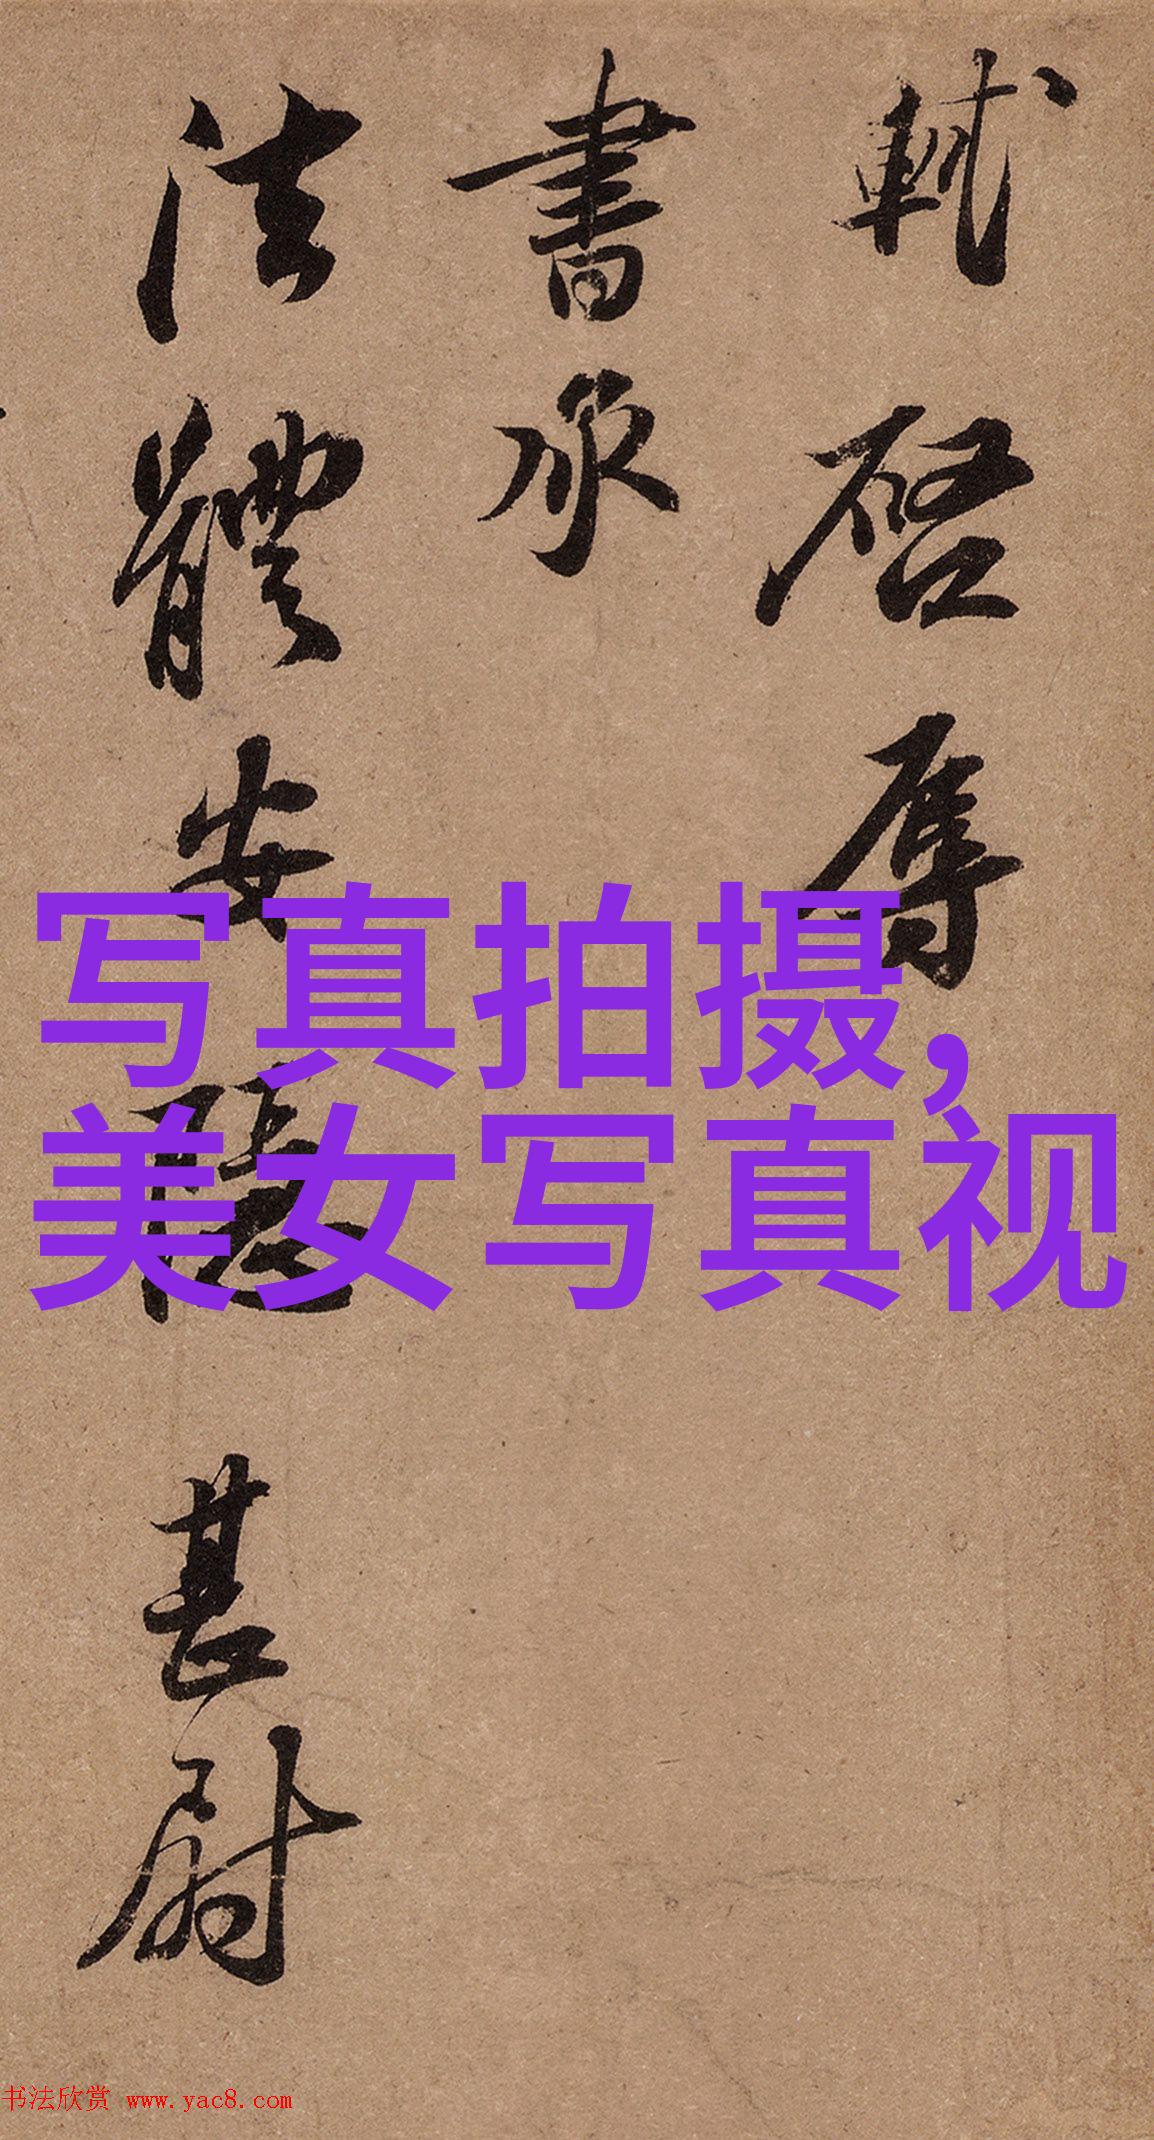 軾啓辱
書承
法體安隱
甚尉
写真拍摄,
美女写真视
书法欣赏 www.yac8.com